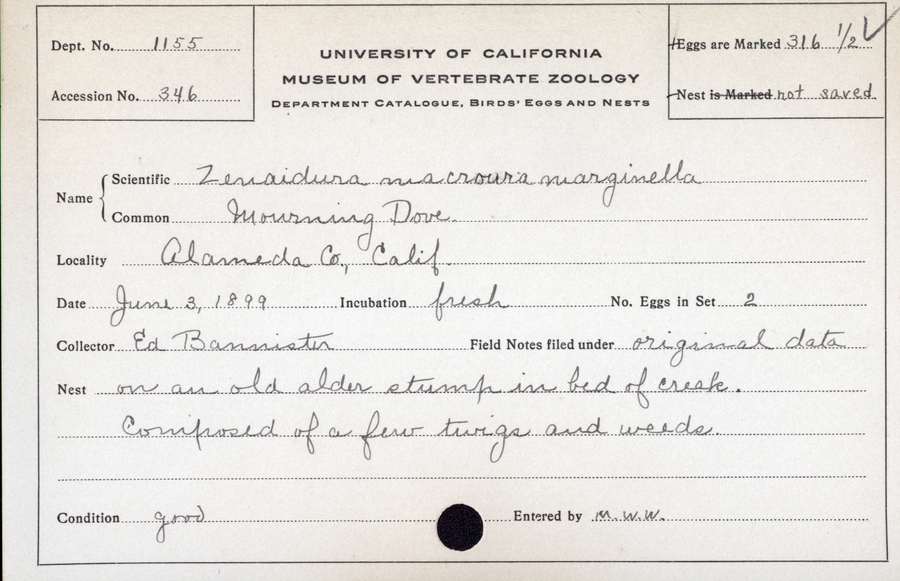 Dept. No. 1155
Accession No. 346
UNIVERSITY OF CALIFORNIA
MUSEUM OF VERTEBRATE ZOOLOGY
DEPARTMENT CATALOGUE, BIRDS' EGGS AND NESTS
Eggs are Marked 316 1/2
Nest is Marked not saved
Name
Scientific Zenaidura macroura marginella
Common Mourning Dove.
Locality Alameda Co., Calif.
Date June 3, 1899 Incubation fresh No. Eggs in Set 2
Collector Ed Bannister Field Notes filed under original data
Nest on an old alder stump in bed of creek.
Composed of a few twigs and weeds.
Condition good Entered by M.W.W.